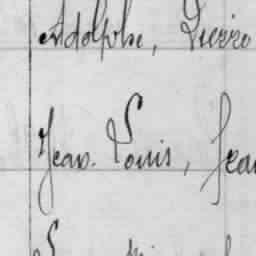 Adolphe, Pierre
Jean. Louis, Jean